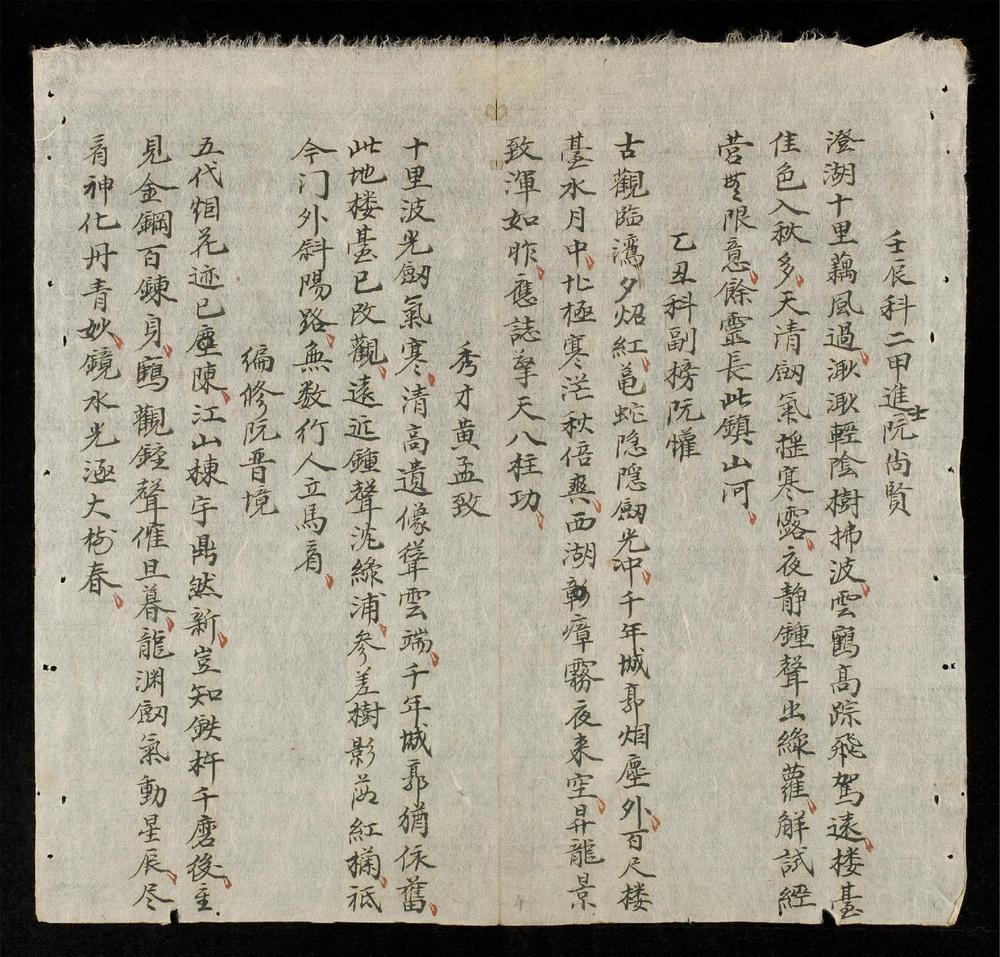 壬辰科二甲進士阮尚賢
澄湖十里藕風過湫湫輕陰樹拂波雲鶴高踪飛駕遠楼臺
佳色入秋多天清劎氣摇寒露夜静鍾聲出綠蘿觧試經
营無限意餘霊長此鎮山河
乙丑科副榜阮懽
古觀臨灣夕炤紅黾蛇隐隱劎光冲千年城郭烟塵外百尺楼
臺水月中北極寒茫秋倍爽西湖彰瘴霧夜来空昇龍景
致渾如昨應誌擎天八柱功
秀才黄孟致
十里波光劎氣寒清髙遺像聳雲端千年城郭猶依舊
此地楼䑓已改觀遠近鍾聲沈綠浦参差樹影落紅欄祗
今门外斜陽路無数行人立馬看
编修阮晋境
五代烟花迹已塵陳江山棟宇鼎然新豈知鉄杵千磨後重
見金鋼百鍊身鶴觀鍾聲催旦暮龍渊劎氣動星辰尽
看神化丹青妙鏡水光涵大樹春